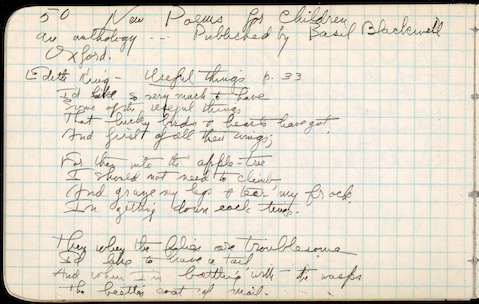 50 New Poems for Children
an anthology --- Published by Basil Blackwell
Oxford.
Edith King - Useful things p. 33
I'd like so very much to have
Some of the useful things
That lucky birds & beasts have got
And first of all their wings;
For then into the apple-tree
I should not need to climb
And graze my legs & tear my frock
In getting down each time.
Then when the flies are troublesome
I'd like to have a tail
And when I'm battling with the wasps
The beetles coat of mail.